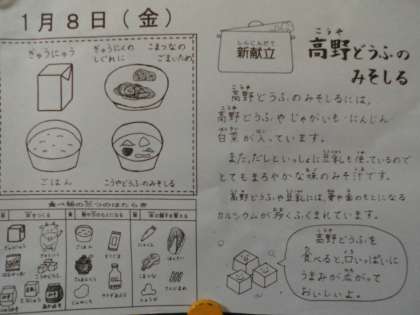 1月8日(金)
ぎゅうにゅう
ぎゅうにくの
しぐれに
こまつなの
ごまいため
ごはん
こうやどうふのみそしる
しんこんだて
新献立
こうや
高野どうふの
みそしる
高野どうふのみそしるには、
高野どうふやじゃがいも・にんじん・
白菜が入っています。
また、だしといっしょに豆乳も使っているので
とてもまろやかな味のみそ汁です。
高野どうふや豆乳には、骨や歯のもとになる
カルシウムが多くふくまれています。
高野どうふを
食べると、口いっぱいに
うまみが広がって
おいしいよ。
食べ物の三つのはたらき
ぎゅうにゅう
ごはん
にんじん